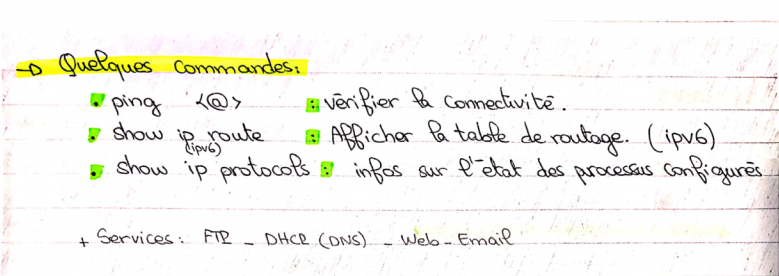 → Quelques commandes:
• ping <@> : vérifier la connectivité.
• show ip route : Afficher la table de routage. (ipv6)
(ipv6)
• show ip protocols : infos sur l'état des processus configurés
+ Services: FTP - DHCP (DNS) - Web - Email